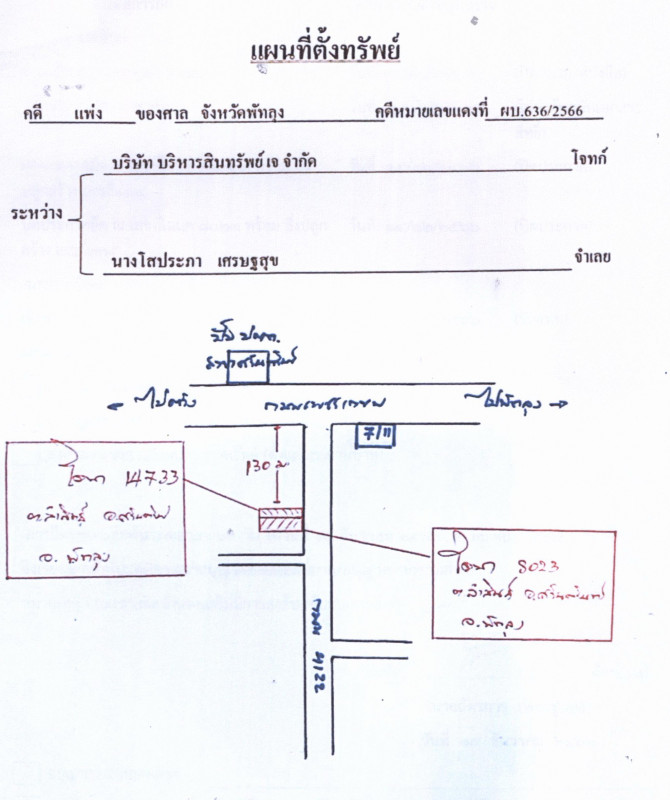 แผนที่ตั้งทรัพย์
คดี แพ่ง ของศาล จังหวัดพัทลุง คดีหมายเลขแดงที่ ผบ.636/2566
บริษัท บริหารสินทรัพย์ เจ จำกัด โจทก์
ระหว่าง
นางโสประภา เศรษฐสุข จำเลย
ปั๊ม ปตท.
สาขาศรีนครินทร์
ไปตรัง ถนนเพชรเกษม ไปพัทลุง
7/11
130 ม
โฉนด 14733
ต.ลำสินธุ์ อ.ศรีนครินทร์
จ.พัทลุง
โฉนด 8023
ต.ลำสินธุ์ อ.ศรีนครินทร์
จ.พัทลุง
ถนน 4122